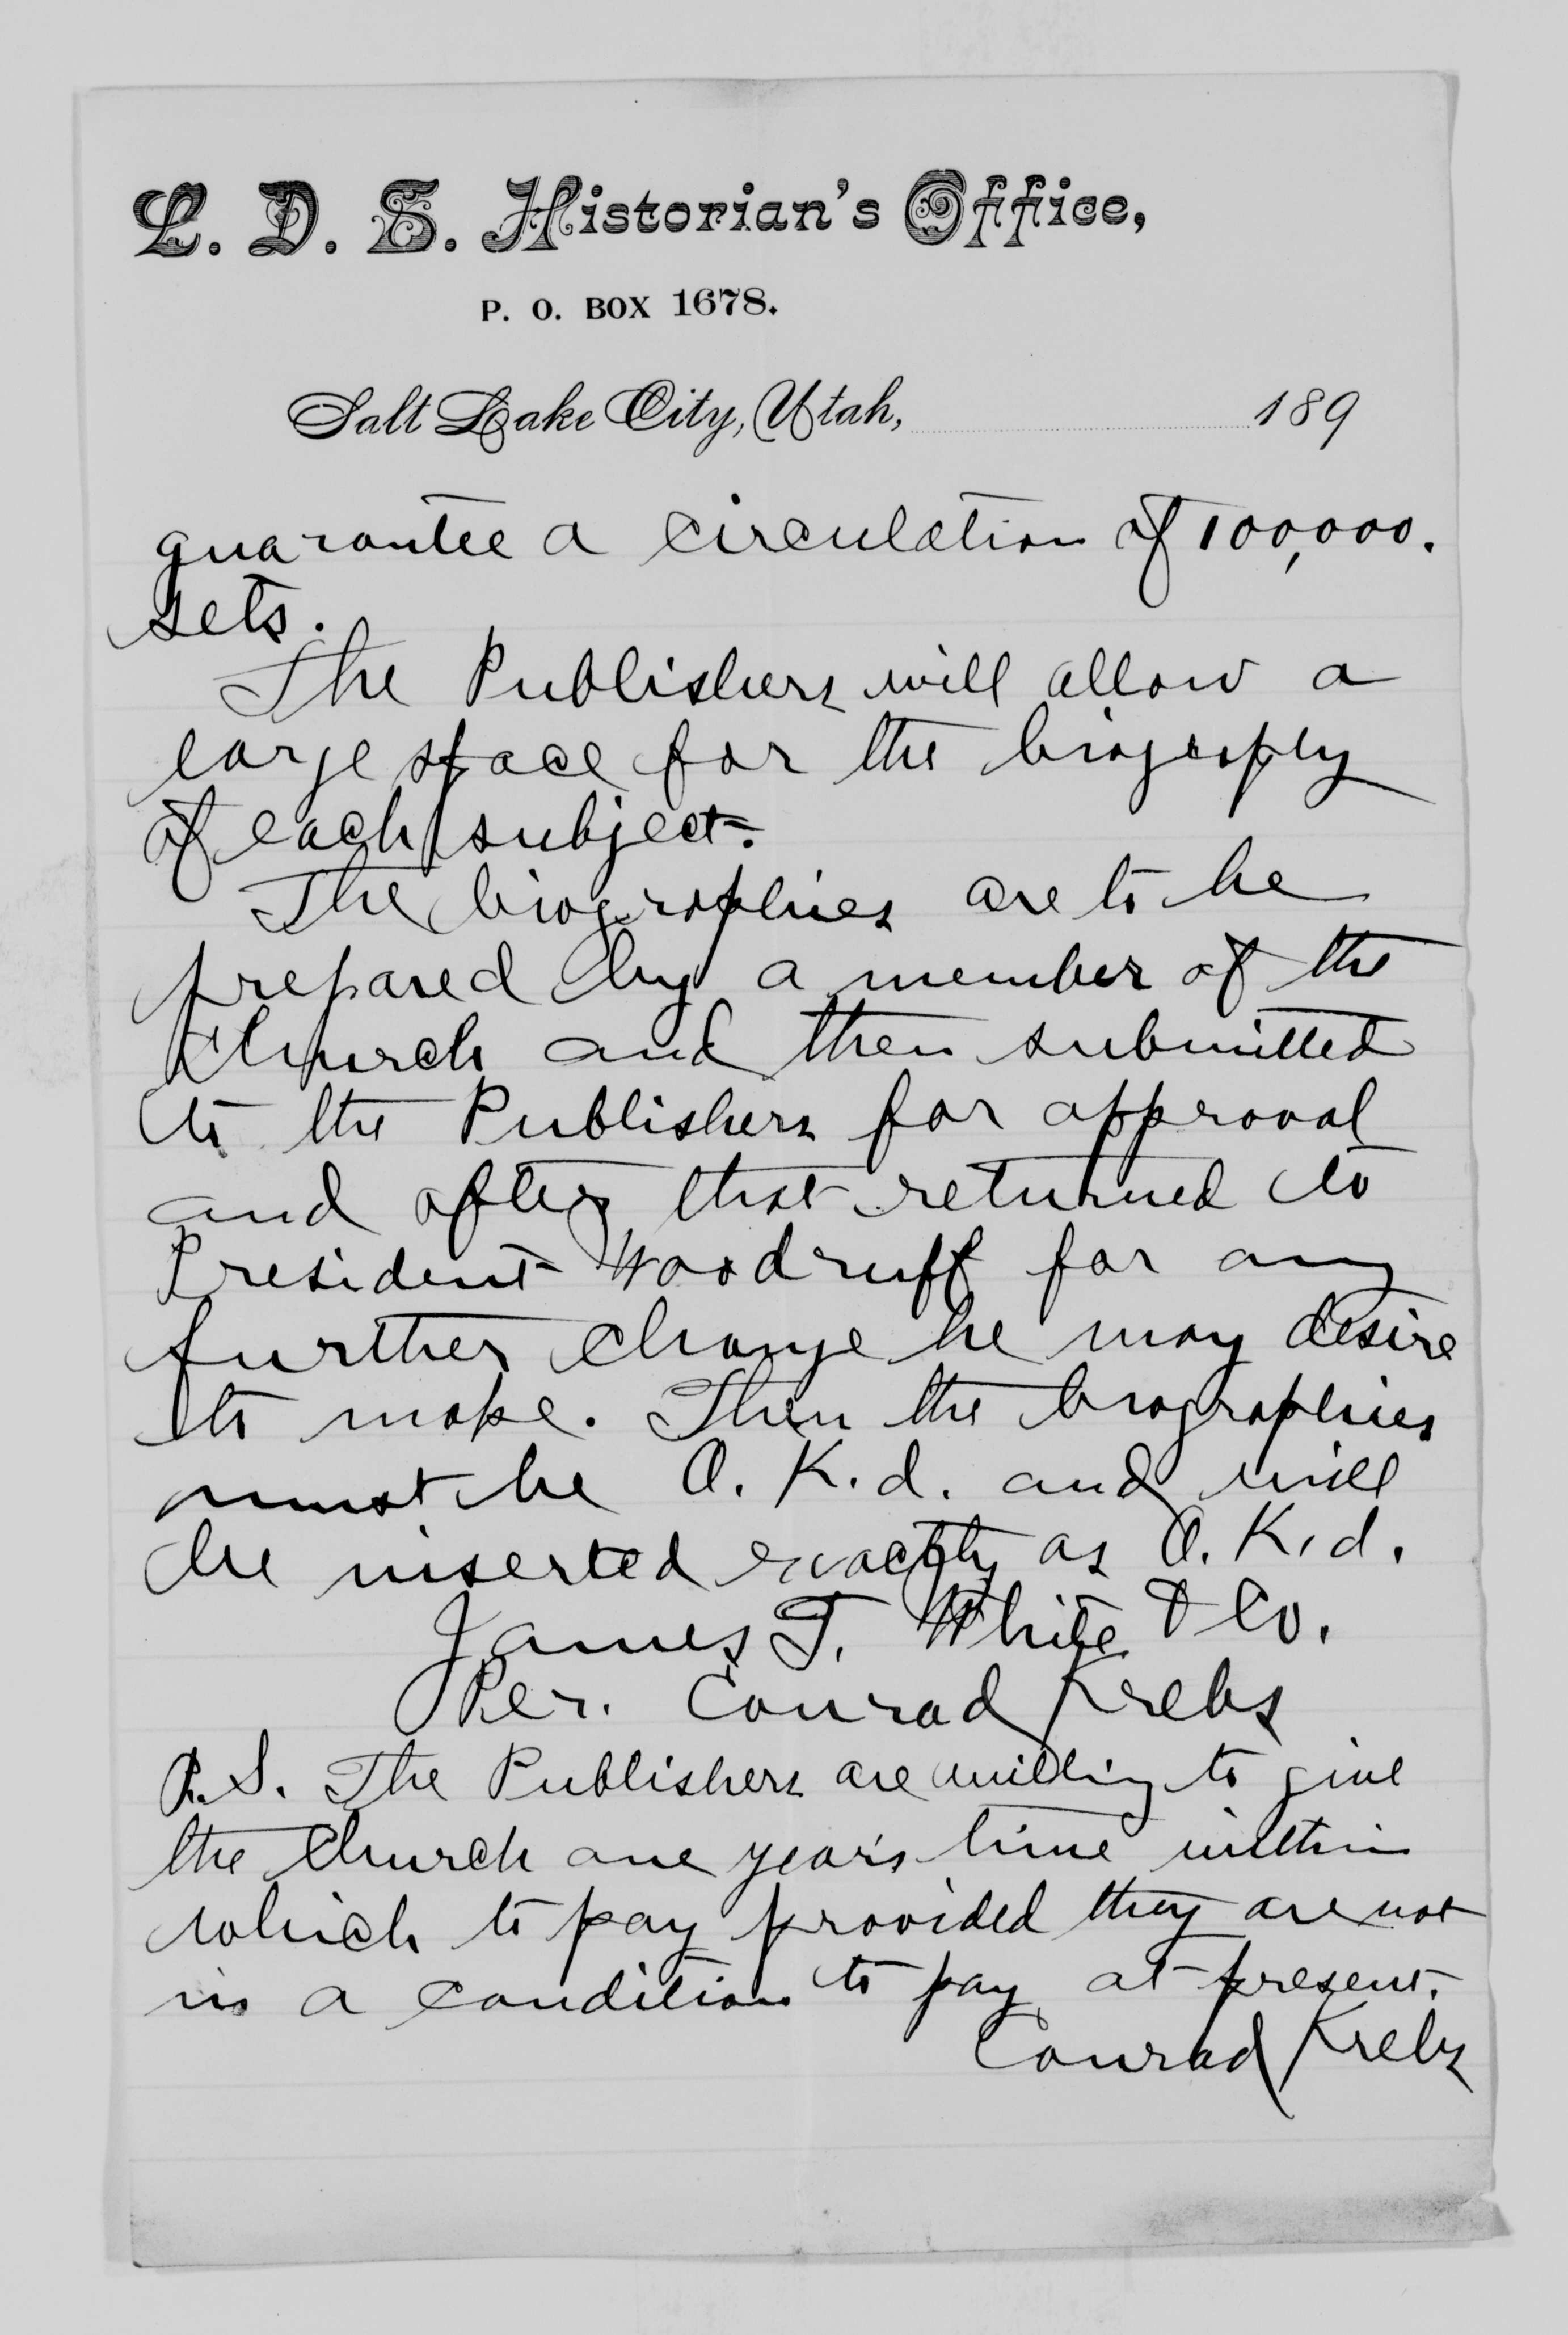 L. D. S. Historian's Office,
P. O. BOX 1678.
Salt Lake City, Utah, 189
guarantee a circulation of 100,000.
sets.
The Publishers will allow a
large space for the biography
of each subject.
The biographies are to be
prepared by a member of the
Church and then submitted
to the Publishers for approval
and after that returned to
President Woodruff for any
further change he may desire
to make. Then the biographies
must be O. K.d. and will
be inserted exactly as O. K.d.
James T. White & Co.
Per. Conrad Krebs
P.S. The Publishers are willing to give
the Church one year's time within
which to pay provided they are not
in a condition to pay at present.
Conrad Krebs